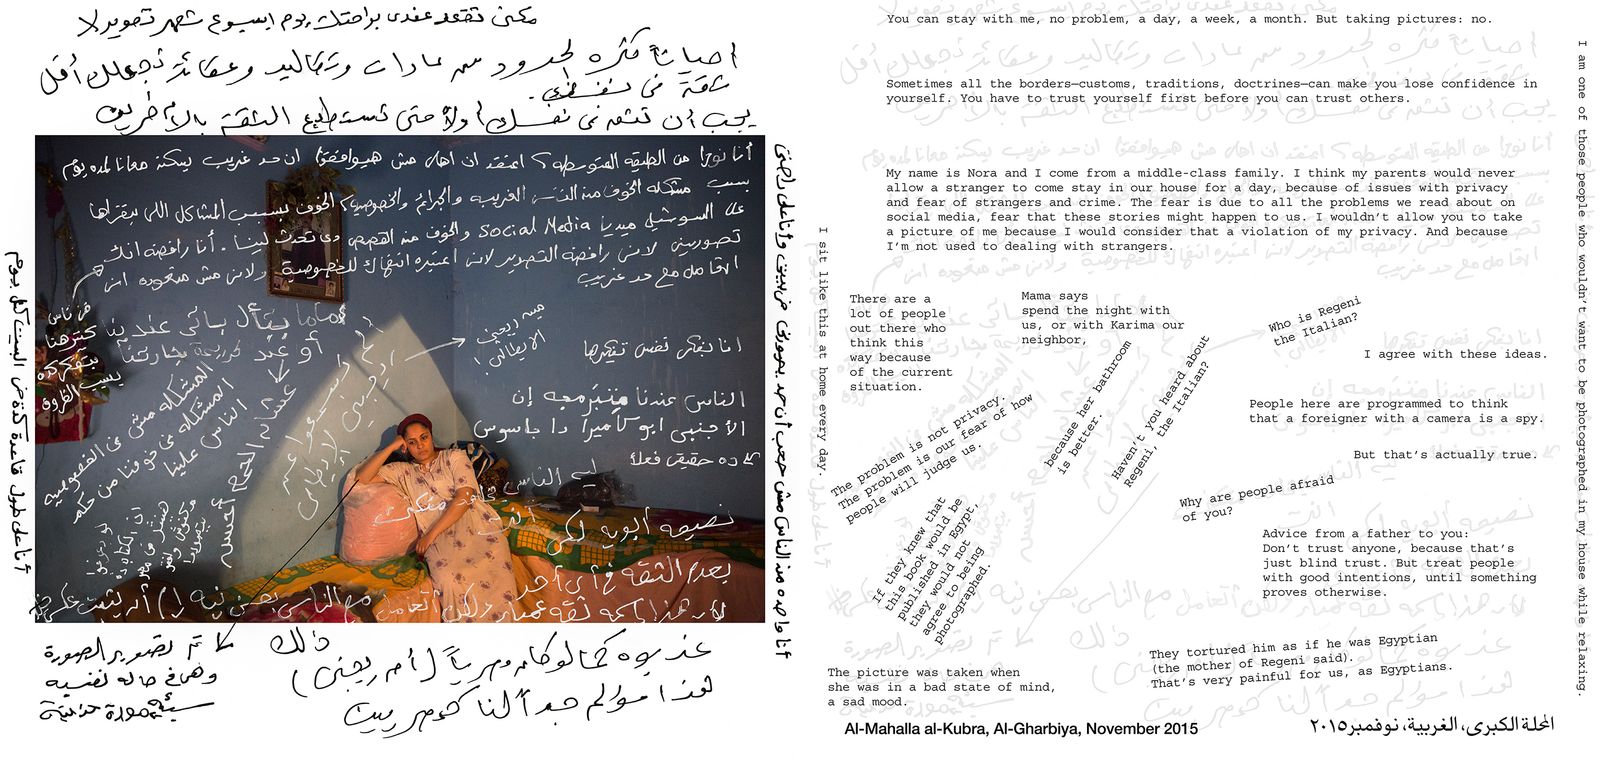 ممكن تقعد عندى براحتك يوم اسبوع شهر تصوير لا
أحياناً كثرة الحدود من عادات وتقاليد وعقائد تجعلك أقل
ثقة فى نفسك.
يجب أن تثق فى نفسك أولاً حتى تستطيع الثقة بالآخرين
أنا نورا من الطبقه المتوسطه، اعتقد ان اهلى مش هيوافقوا ان حد غريب يسكن معانا لمده يوم
بسبب مشكله الخوف من الناس الغريبه والجرائم والخصوصية، الخوف بسبب المشاكل اللى بنقراها
على السوشيل ميديا Social Media والخوف من القصص دى تحدث لينا. أنا رافضه انك
تصورينى لانى رافضة التصوير لانى أعتبره انتهاك للخصوصية ولانى مش متعوده انى
اتعامل مع حد غريب
فى ناس
كتير هنا
بتفكر كده
بسبب الظروف
ماما بتقول باتى عندينا
أو عند كريمة جارتنا
عشان الحمام أحسن
المشكله مش فى الخصوصيه
المشكله فى خوفنا من حكم
الناس علينا
ريجينى الإيطالى
مين ريجينى
الايطالى؟
انا بفكر نفس تفكيرها
الناس عندنا متبرمجه إن
الأجنبى ابو كاميرا دا جاسوس
ده حقيقى فعلاً
ليه الناس بتخاف منك
نصيحه أبويه لكى
بعدم الثقه فى أى أحد
لأن هذا ثقه عمياء ولكن أتعامل مع الناس بحسن نيه
تم تصوير الصورة
وهى فى حاله نفسيه
سيئة صورة حزينة
عذبوه كما لو كان مصرياً (أم ريجينى)
هذا مؤلم جداً لنا كمصريين
ذلك
أنا على طول قاعدة كدة فى البيت كل يوم
أنا واحده من الناس مش حب أن حد يصورنى فى بيتى وأنا على راحتى
You can stay with me, no problem, a day, a week, a month. But taking pictures: no.
Sometimes all the borders—customs, traditions, doctrines—can make you lose confidence in
yourself. You have to trust yourself first before you can trust others.
My name is Nora and I come from a middle-class family. I think my parents would never
allow a stranger to come stay in our house for a day, because of issues with privacy
and fear of strangers and crime. The fear is due to all the problems we read about on
social media, fear that these stories might happen to us. I wouldn't allow you to take
a picture of me because I would consider that a violation of my privacy. And because
I'm not used to dealing with strangers.
I sit like this at home every day.
There are a
lot of people
out there who
think this
way because
of the current
situation.
Mama says
spend the night with
us, or with Karima our
neighbor,
because her bathroom
is better.
Haven't you heard about
Regeni, the Italian?
Who is Regeni
the Italian?
I agree with these ideas.
The problem is not privacy.
The problem is our fear of how
people will judge us.
People here are programmed to think
that a foreigner with a camera is a spy.
But that's actually true.
Why are people afraid
of you?
If they knew that
this book would be
published in Egypt,
they would not
agree to being
photographed.
Advice from a father to you:
Don't trust anyone, because that's
just blind trust. But treat people
with good intentions, until something
proves otherwise.
They tortured him as if he was Egyptian
(the mother of Regeni said).
That's very painful for us, as Egyptians.
The picture was taken when
she was in a bad state of mind,
a sad mood.
I am one of those people who wouldn't want to be photographed in my house while relaxing.
Al-Mahalla al-Kubra, Al-Gharbiya, November 2015
المحلة الكبرى، الغربية، نوفمبر ٢٠١٥